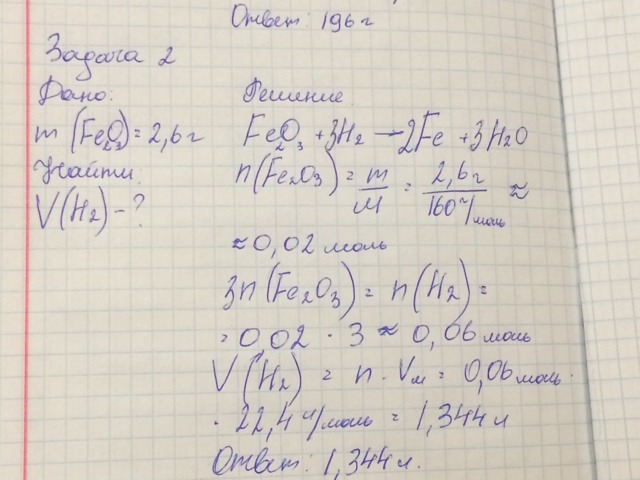 Ответ: 196 г
Задача 2
Дано:
m (Fe₂O₃) = 2,6 г
Найти
V(H₂) - ?
Решение
Fe₂O₃ + 3H₂ → 2Fe + 3H₂O
n(Fe₂O₃) = m/M = 2,6 г/160 г/моль ≈
≈ 0,02 моль
3n(Fe₂O₃) = n(H₂) =
= 0,02 · 3 ≈ 0,06 моль
V(H₂) = n · Vм = 0,06 моль ·
· 22,4 л/моль = 1,344 л
Ответ: 1,344 л.